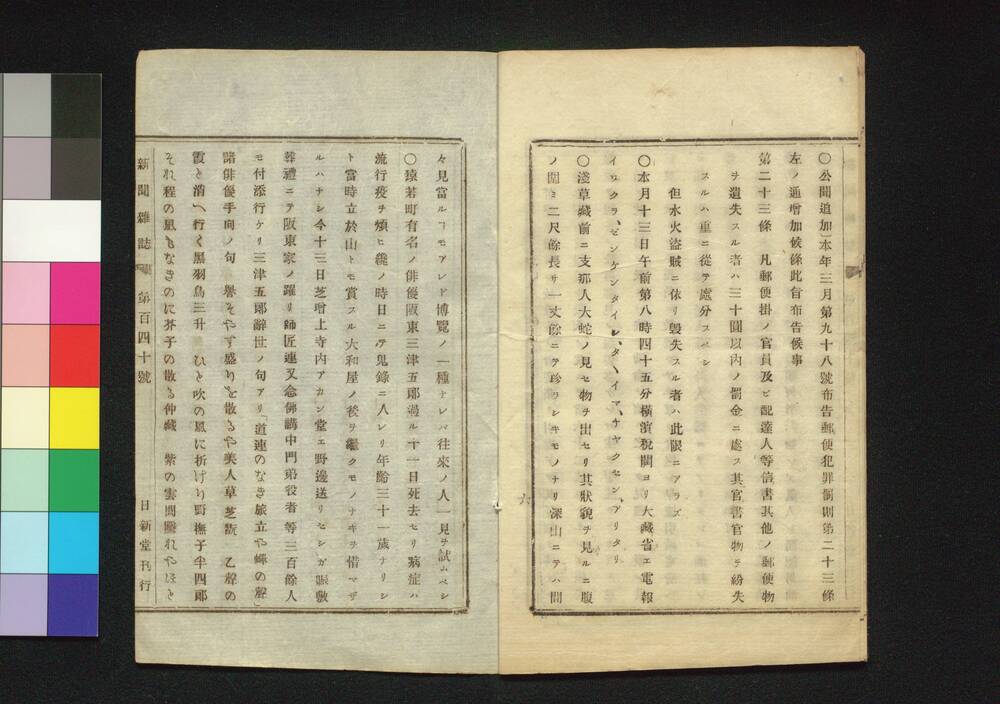 〇公聞追加本年三月第九十八號布告郵便犯罪罰則第二十三條
左ノ通增加候條此旨布告候事
第二十三條 凡郵便掛ノ官員及ビ配達人等信書其他ノ郵便物
ヲ遺失スル者ハ三十圓以內ノ罰金ニ處ス其官書官物ヲ紛失
スルハ重ニ從テ處分スベシ
但水火盜賊ニ依リ毀失スル者ハ此限ニアラズ
〇本月十三日午前第八時四十五分橫濱稅關ヨリ大藏省エ電報
イワクラ、ゼンケンタイシ、タヾイマ、チヤクセン、アリタリ
〇淺草藏前ニ支那人大蛇ノ見セ物ヲ出セリ其狀貌ヲ見ルニ腹
ノ圍ミ二尺餘長サ一丈餘ニテ珍ラシキモノナリ深山ニテハ間
六
々見當ルコモアレド博覽ノ一種ナレバ往來ノ人一見ヲ試ムベシ
〇猿若町有名ノ俳優阪東三津五郞過ル十一日死去セリ病症ハ
流行疫ヲ煩ヒ纔ノ時日ニテ鬼錄ニ入レリ年齡三十一歲ナリシ
ト當時立於山トモ賞スル大和屋ノ後ヲ繼クモノナキヲ惜マザ
ルハナシ今十三日芝增上寺內アカン堂エ野邊送リセシガ賑敷
葬禮ニテ阪東家ノ躍リ師匠連又念佛講中門弟役者等三百餘人
モ付添行ケリ三津五郞辭世ノ句アリ「道連のなき旅立や蟬の聲」
諸俳優手向ノ句 譽そやす盛りを散るや美人草芝翫 乙鳥の
霞と消へ行く黑羽鳥三升 ひと吹の風に折けり野撫子半四郞
それ程の風もなきのに芥子の散る仲藏 紫の雲間隱れやほとと
新聞雜誌 第百四十號
日新堂刊行